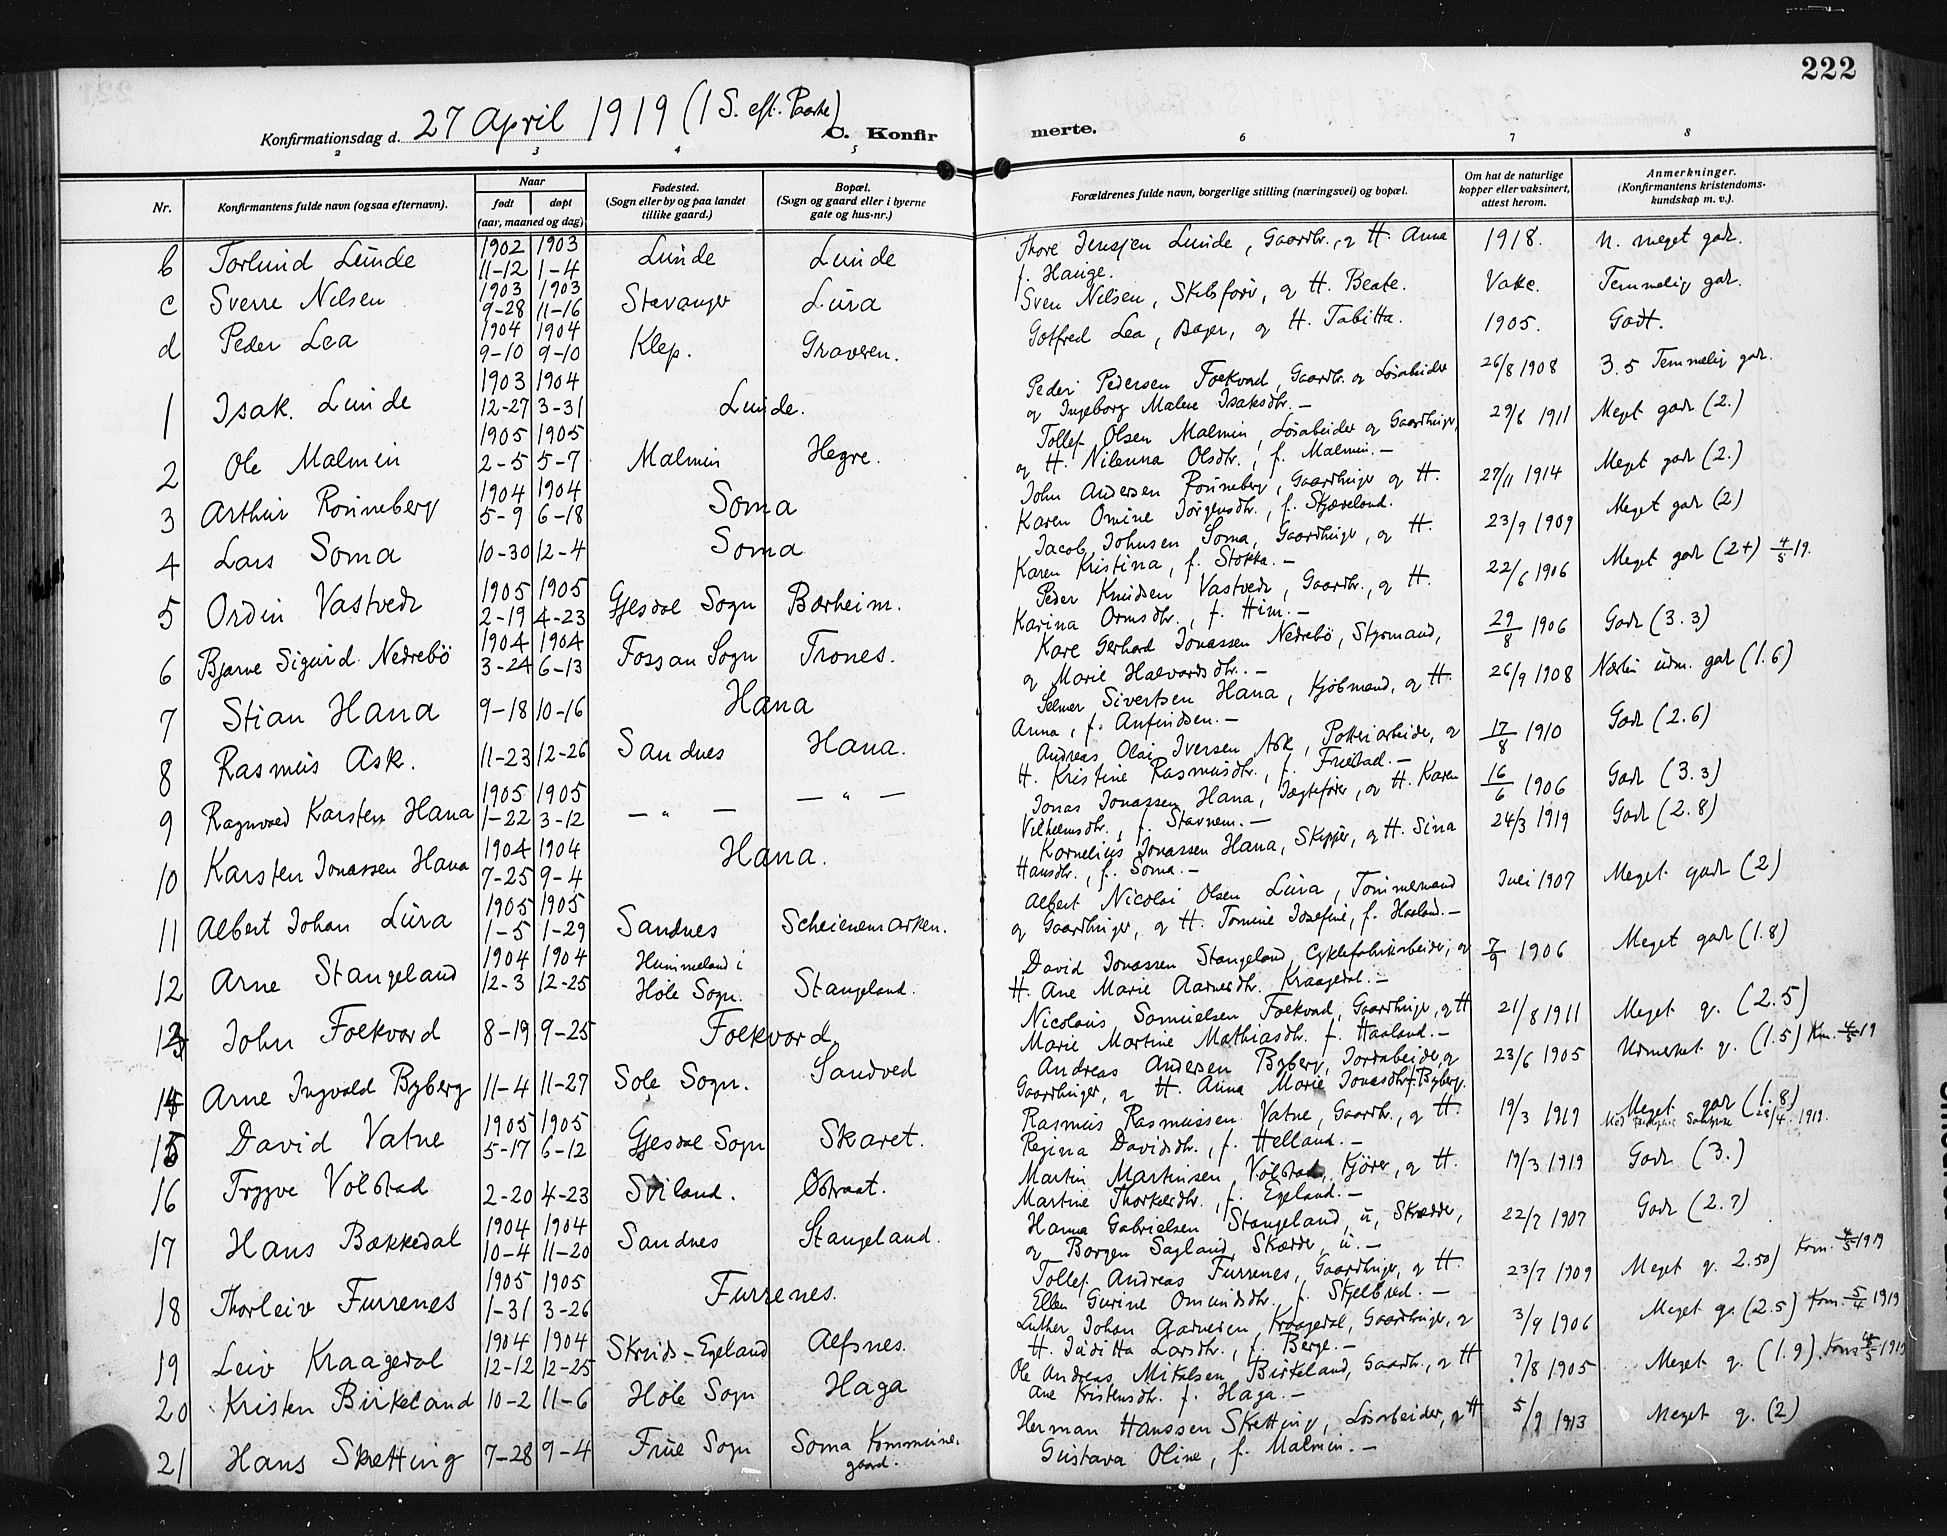 222
Konfirmationsdag d. 27 April 1919 (1 S. eft. Paaske)
C. Konfirmerte.
2 3 4 5 6 7 8
Nr. Konfirmantens fulde navn (ogsaa efternavn). Naar født døpt (aar, maaned og dag) Fødested. (Sogn eller by og paa landet tillike gaard.) Bopæl. (Sogn og gaard eller i byerne gate og hus-nr.) Forældrenes fulde navn, borgerlige stilling (næringsvei) og bopæl. Om hat de naturlige kopper eller vaksinert, attest herom. Anmerkninger. (Konfirmantens kristendoms-kundskap m. v.).
b Torlund Lunde 1902 11-12 1903 1-4 Lunde Lunde Thore Lunde, Gaardbr., og H. Anna f. Hauge. 1918. n. meget godt.
c Sverre Nilsen 1903 9-28 1903 11-16 Stavanger Lura Sven Nilsen, Skibsfører, og H. Beate. Temmelig godt.
d Peder Lea 1904 9-10 1904 9-10 Klep. Graveren. Gotfred Lea, Bager, og H. Tabitta. 1905. Godt.
1 Isak Lunde 1903 12-27 1904 3-31 Lunde. Peder Pedersen Folkvord, Gaardbr. og Løsarbeider og Ingeborg Malene Isaksdtr. – 26/8 1908 3.5 Temmelig godt.
2 Ole Malmin 1905 2-5 1905 5-7 Malmin Hegre. Tollef Olsen Malmin, Løsarbeider og Gaardbruger, og H. Nilenna Olsdtr., f. Malmin. – 29/6 1911 Meget godt (2.)
3 Arthur Rønneberg 1904 5-9 1904 6-18 Soma John Andersen Rønneberg, Gaardbruger og H. Karen Omine Jørgensdtr., f. Skjæveland. 27/11 1914 Meget godt (2.)
4 Lars Soma 10-30 12-4 Soma Jacob Johnsen Soma, Gaardbruger, og H. Karen Kristina, f. Stokka. – 23/9 1909 Meget godt (2)
5 Ordin Vastvedt 1905 2-19 1905 4-23 Gjesdal Sogn Børheim. Peder Knudsen Vastvedt, Gaardbr., og H. Karina Ormsdtr., f. Him. – 22/6 1906 Meget godt (2+) 4/5 19.
6 Bjarne Sigurd Nedrebö 1904 3-24 1904 6-13 Fossan Sogn Trones. Kare Gerhard Jonassen Nedrebö, Styrmand, og Marie Halvardsdtr. – 29/8 1906 Godt (3.3)
7 Stian Hana 9-18 10-16 Hana Selmer Sivertsen Hana, Kjøbmand, og H. Anna, f. Anfindsen. – 26/9 1908 Næsten udm. godt (1.6)
8 Rasmus Ask. 11-23 12-26 Sandnes Hana. Andreas Olai Iversen Ask, Potteriarbeider, og H. Kristine Rasmusdtr., f. Fuestad. – 17/8 1910 Godt (2.6)
9 Ragnvald Karsten Hana 1905 1-22 1905 3-12 – „ – – „ – Jonas Jonassen Hana, Jægtefører, og H. Karen Vilhelmsdtr., f. Stavnem. – 16/6 1906 Godt (3.3)
10 Karsten Jonassen Hana 1904 7-25 1904 9-4 Hana. Kornelius Jonassen Hana, Skipper, og H. Sina Hansdtr., f. Soma. – 24/3 1919 Godt (2.8)
11 Albert Johan Lura 1905 1-5 1905 1-29 Sandnes Scheienemarken. Albert Nicolai Olsen Lura, Tømmermand og Gaardbruger, og H. Tomine Josefine, f. Haaland. – Juli 1907 Meget godt (2)
12 Arne Stangeland 1904 12-3 1904 12-25 Hummeland i Høle Sogn. Stangeland. David Jonassen Stangeland, Cyklefabrikarbeider, og H. Ane Marie Aadnesdtr. Kraagedal. – 7/9 1906 Meget godt (1.8)
13 John Folkvord 8-19 9-25 Folkvord. Nicolaus Samuelsen Folkvord, Gaardbruger, og H Marie Martine Mathiasdtr. f. Haaland. – 21/8 1911 Meget g. (2.5)
14 Arne Ingvald Byberg 11-4 11-27 Sole Sogn. Sandved Andreas Andersen Byberg, Jordarbeider, og Gaardbruger, og H. Anna Marie Jonasdtr. f. Byberg. 23/6 1905 Udmerket g. (1.5) Km. 4/5 19
15 David Vatne 1905 5-17 1905 6-12 Gjesdal Sogn Skaret. Rasmus Rasmussen Vatne, Gaardbr., og H. Regina Davidsdtr., f. Helland. – 19/3 1919 Meget godt (1.8) 28/4 1919.
16 Trygve Völstad 2-20 4-23 Sviland. Østraat. Martin Martinsen Völstad, Kjører, og H. Martine Thorkelsdtr., f. Egeland. – 19/3 1919 Godt (3.)
17 Hans Bækkedal 1904 10-4 1904 11-20 Sandnes Stangeland. Hanna Gabrielsen Stangeland, u, Skredder, og Borgen Sagland, Skredder, u. – 22/7 1907 Godt (2.7)
18 Thorleiv Furrenes 1905 1-31 1905 3-26 Furrenes. Tollef Andreas Furrenes, Gaardbruger, og H. Ellen Gurine Omundsdtr. f. Skjelbred. – 23/7 1909 Meget g. 2.50) Kom. 4/5 1919
19 Leiv Kraagedal 1904 12-12 1904 12-25 Skruds-Egeland Alfsnes. Luther Johan Aadnesen Kraagedal, Gaardbruger, og H. Juditta Larsdtr., f. Berge. – 3/9 1906 Meget g. (2.5) Kom. 5/4 1919
20 Kristen Birkeland 10-2 11-6 Høle Sogn Haga Ole Andreas Mikalsen Birkeland, Gaardbr., og H Ane Kristensdtr. f. Haga. – 7/8 1905 Meget g. (1.9) Kom 4/5 1919
21 Hans Skretting 7-28 9-4 Frue Sogn Soma Kommunegaard. Herman Hanssen Skretting, Løsarbeider, og H Gustava Oline, f. Malmin. – 5/9 1913 Meget g. (2)